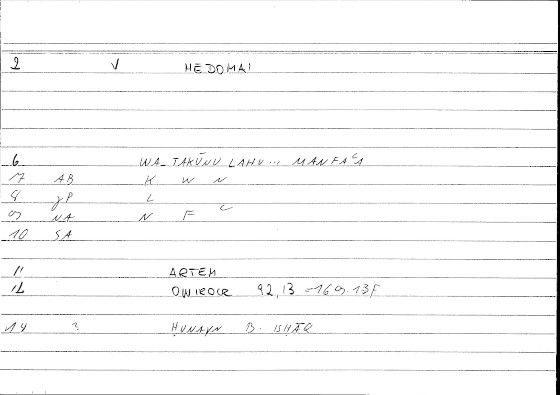 2 √ HEDOMAI
6 WA-TAKŪNU LAHU... MANFAʿA
7 AB K W N
8 γP L
9 NA N F ʿ
10 SA
11 ARTEM
12 92,13 = 169.13F
14 ? ḤUNAYN B. ISḤĀQ